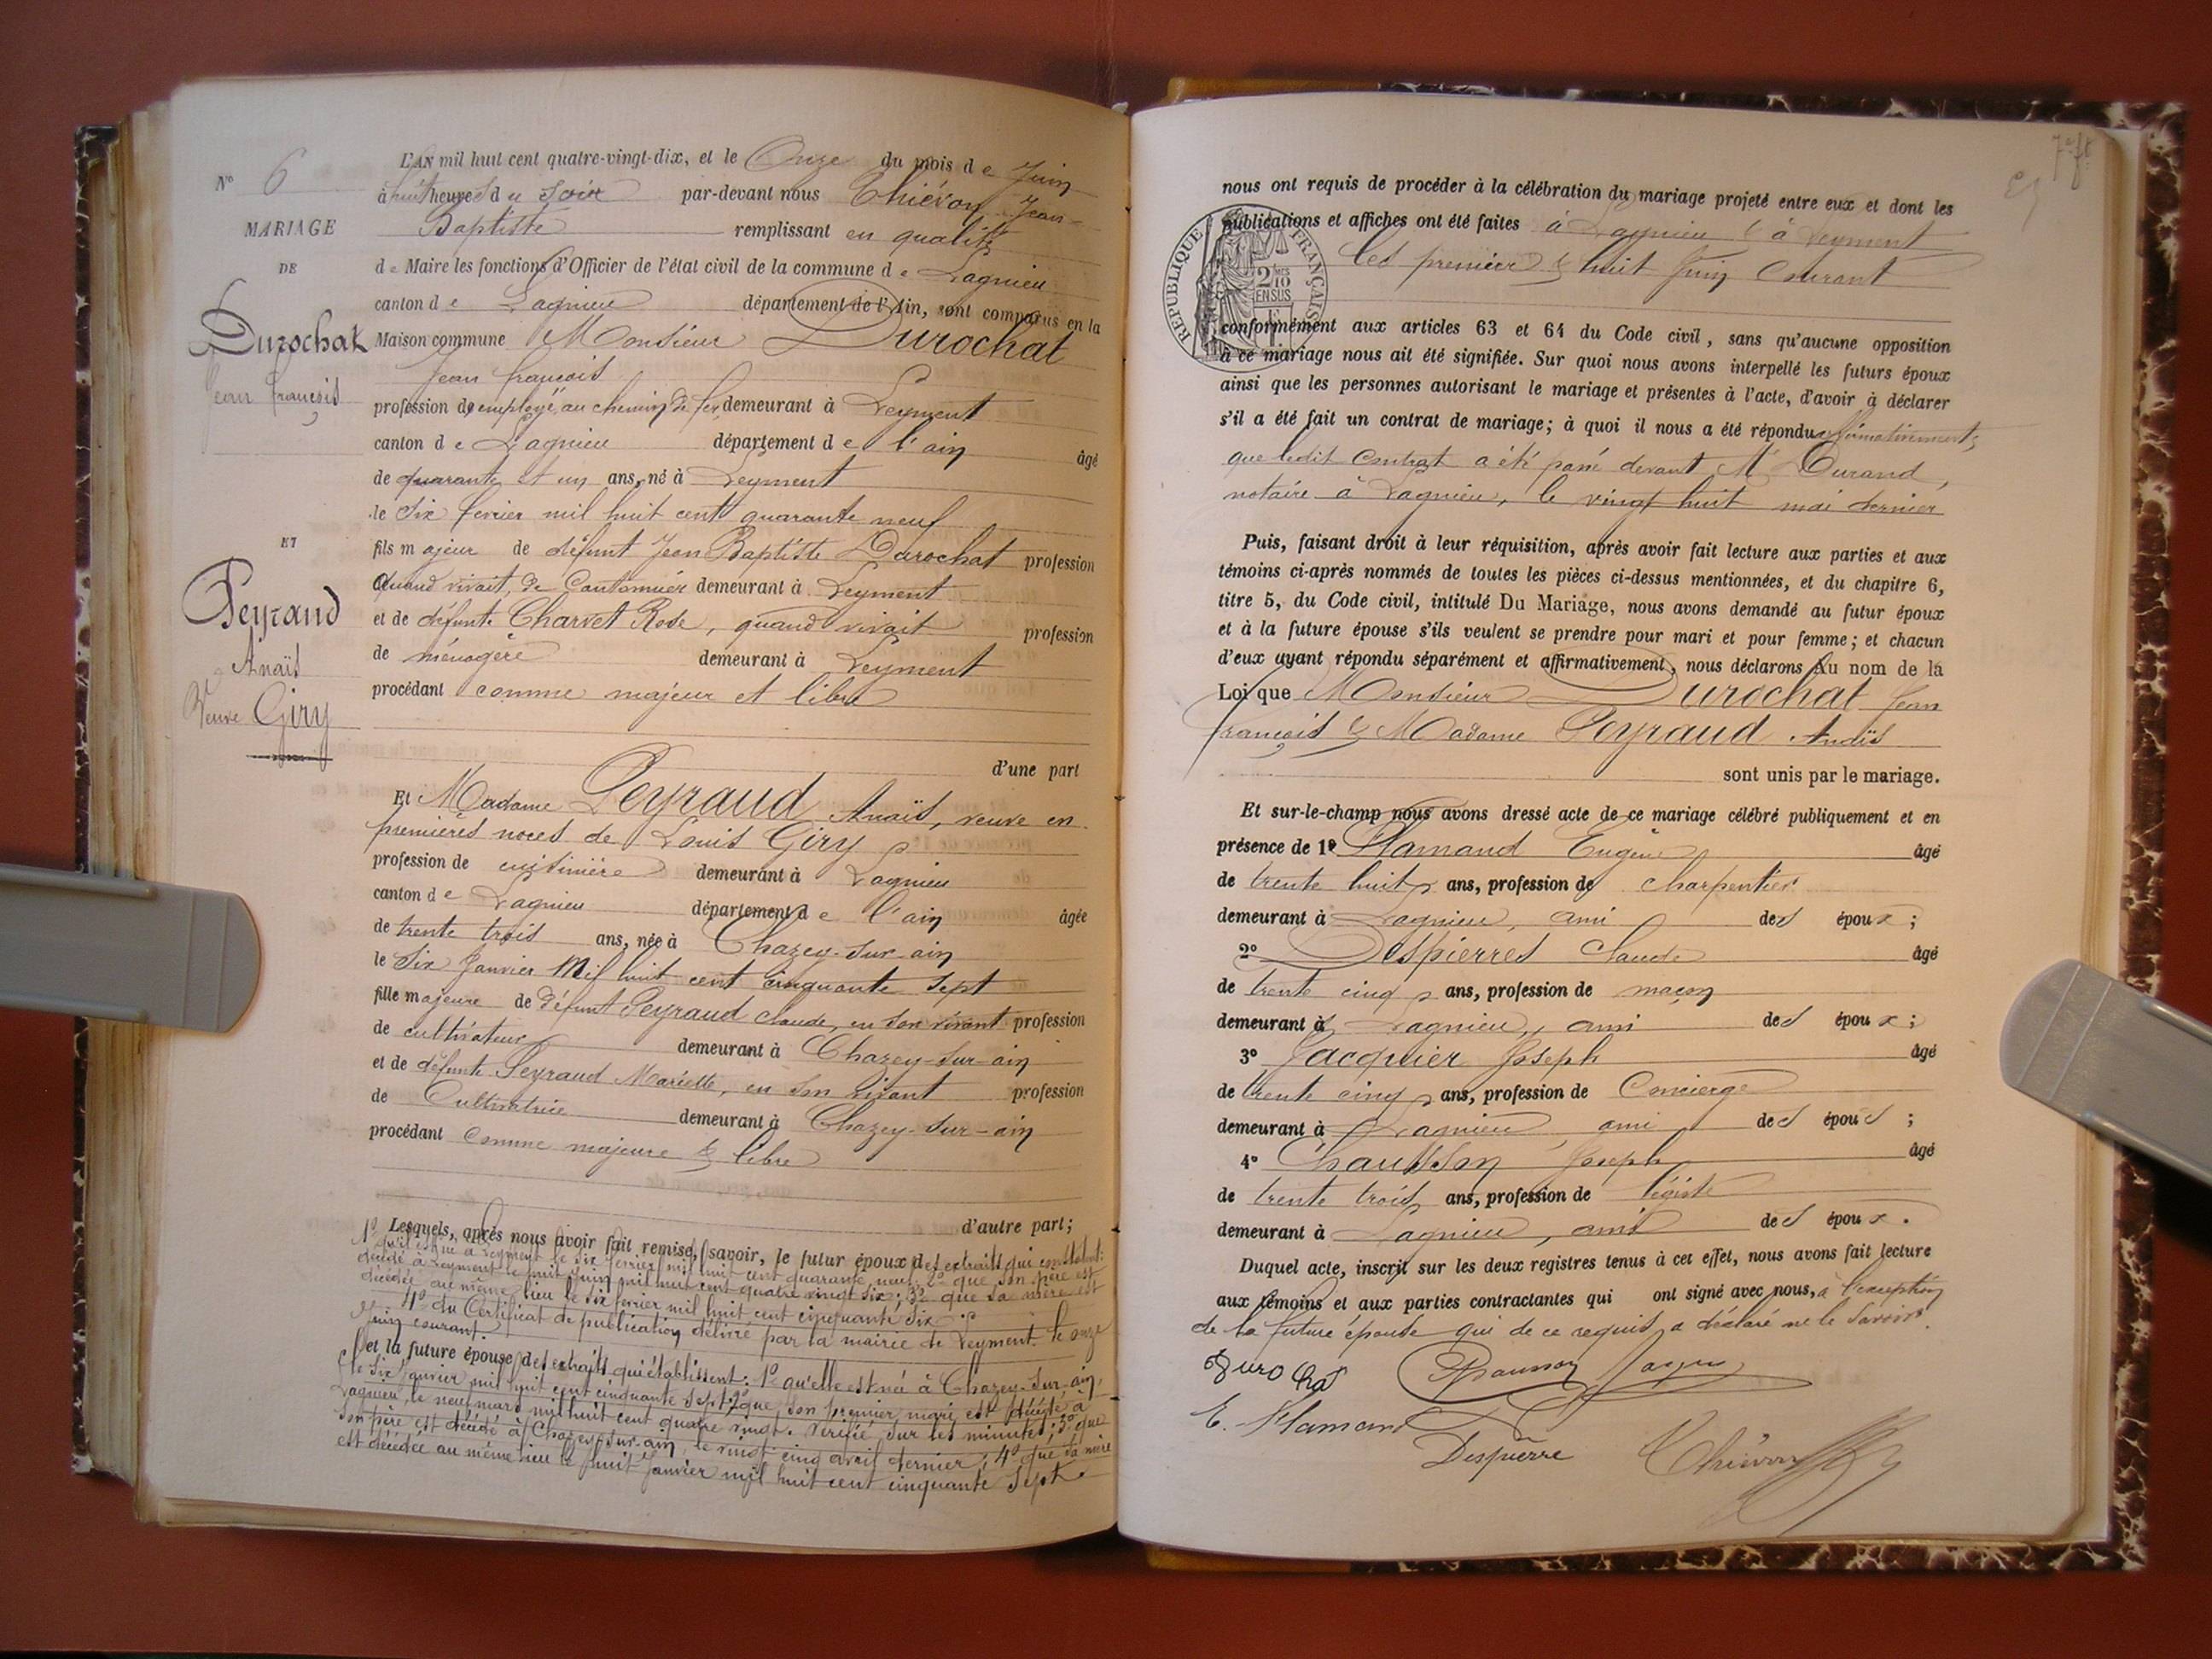 N° 6
MARIAGE
DE
Durochat
Jean françois
ET
Peyraud
Anaïs
Veuve Giry
L'AN mil huit cent quatre-vingt-dix, et le Onze du mois de Juin
à huit heures du soir par-devant nous Thiévon Jean-
Baptiste remplissant en qualité
de Maire les fonctions d'Officier de l'état civil de la commune de Lagnieu
canton de Lagnieu département de l'Ain, sont comparus en la
Maison commune Monsieur Durochat
Jean françois
profession d'employé au chemin de fer demeurant à Leyment
canton de Lagnieu département de l'ain âgé
de quarante et un ans, né à Leyment
le six février mil huit cent quarante neuf
fils majeur de défunt Jean Baptiste Durochat profession
quand vivait, de Cantonnier demeurant à Leyment
et de défunte Charvet Rose, quand vivait profession
de ménagère demeurant à Leyment
procédant comme majeur et libre
d'une part
Et Madame Peyraud Anaïs, veuve en
premières noces de Louis Giry
profession de cuisinière demeurant à Lagnieu
canton de Lagnieu département de l'ain âgée
de trente trois ans, née à Chazey-sur-ain
le six Janvier Mil huit cent cinquante sept
fille majeure de défunt Peyraud Claude, en son vivant profession
de cultivateur demeurant à Chazey-sur-ain
et de défunte Peyraud Mariette, en son vivant profession
de Cultivatrice demeurant à Chazey-sur-ain
procédant comme majeure & libre
d'autre part;
Lesquels, après nous avoir fait remise, savoir, le futur époux des extraits qui constatent:
1° qu'il est né à Leyment le six février mil huit cent quarante neuf; 2° que son père est
décédé à Leyment le huit Juin mil huit cent quatre vingt six; 3° que sa mère est
décédée au même lieu le six février mil huit cent cinquante six
4° du Certificat de publication délivré par la mairie de Leyment le onze
Juin courant.
et la future épouse des extraits qui établissent: 1° qu'elle est née à Chazey-sur-ain,
le six Janvier mil huit cent cinquante sept; 2° que son premier mari est décédé à
Lagnieu, le neuf mars mil huit cent quatre vingt. Vérifié sur les minutes; 3° que
son père est décédé à Chazey-sur-ain, le vingt cinq avril dernier; 4° que sa mère
est décédée au même lieu le huit Janvier mil huit cent cinquante sept
7e ft
nous ont requis de procéder à la célébration du mariage projeté entre eux et dont les
publications et affiches ont été faites à Lagnieu & à Leyment
les premier & huit Juin Courant
RÉPUBLIQUE FRANÇAISE
2/10 EN SUS
conformément aux articles 63 et 64 du Code civil, sans qu'aucune opposition
à ce mariage nous ait été signifiée. Sur quoi nous avons interpellé les futurs époux
ainsi que les personnes autorisant le mariage et présentes à l'acte, d'avoir à déclarer
s'il a été fait un contrat de mariage; à quoi il nous a été répondu affirmativement;
que ledit Contrat a été passé devant Me Durand,
notaire à Lagnieu, le vingt huit mai dernier
Puis, faisant droit à leur réquisition, après avoir fait lecture aux parties et aux
témoins ci-après nommés de toutes les pièces ci-dessus mentionnées, et du chapitre 6,
titre 5, du Code civil, intitulé Du Mariage, nous avons demandé au futur époux
et à la future épouse s'ils veulent se prendre pour mari et pour femme; et chacun
d'eux ayant répondu séparément et affirmativement, nous déclarons Au nom de la
Loi que Monsieur Durochat Jean
françois & Madame Peyraud Anaïs
sont unis par le mariage.
Et sur-le-champ nous avons dressé acte de ce mariage célébré publiquement et en
présence de 1° Flamand Eugène âgé
de trente huit ans, profession de charpentier
demeurant à Lagnieu, ami des époux;
2° Despierres Claude âgé
de trente cinq ans, profession de maçon
demeurant à Lagnieu, ami des époux;
3° Jacquier Joseph âgé
de trente cinq ans, profession de Concierge
demeurant à Lagnieu ami des époux;
4° Chausson Joseph âgé
de trente trois ans, profession de légiste
demeurant à Lagnieu, ami des époux.
Duquel acte, inscrit sur les deux registres tenus à cet effet, nous avons fait lecture
aux témoins et aux parties contractantes qui ont signé avec nous, à l'exception
de la future épouse qui de ce requis a déclaré ne le savoir.
Durochat Chausson Jacquier
E. Flamand
Despierre Thiévon